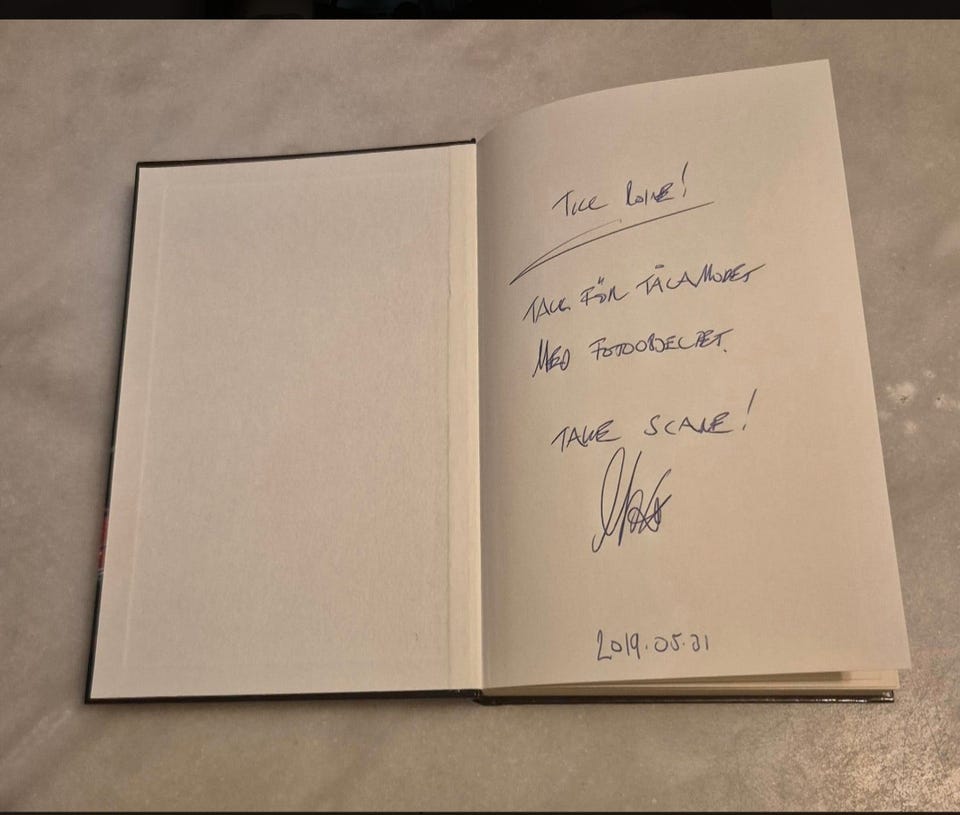 TILL ROINE!
TACK FÖR TÅLAMODET
MED FOTOOBJEKTET.
TAKE SCARE!
2019.05.31